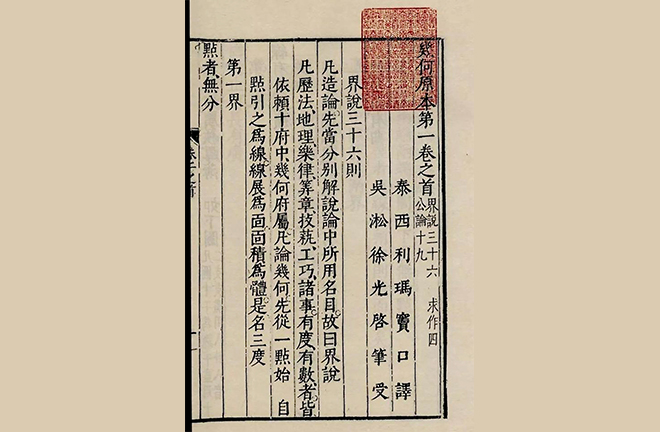 幾何原本第一卷之首
界說三十六
公論十九
求作四
泰西利瑪竇口譯
吳淞徐光啓筆受
界說三十六則
凡造論先當分別解說論中所用名目故曰界說
凡歷法地理樂律筭章技藝工巧諸事有度有數者皆
依頼十府中幾何府屬凡論幾何先從一點始自
點引之爲線線展爲面面積爲體是名三度
第一界
點者無分